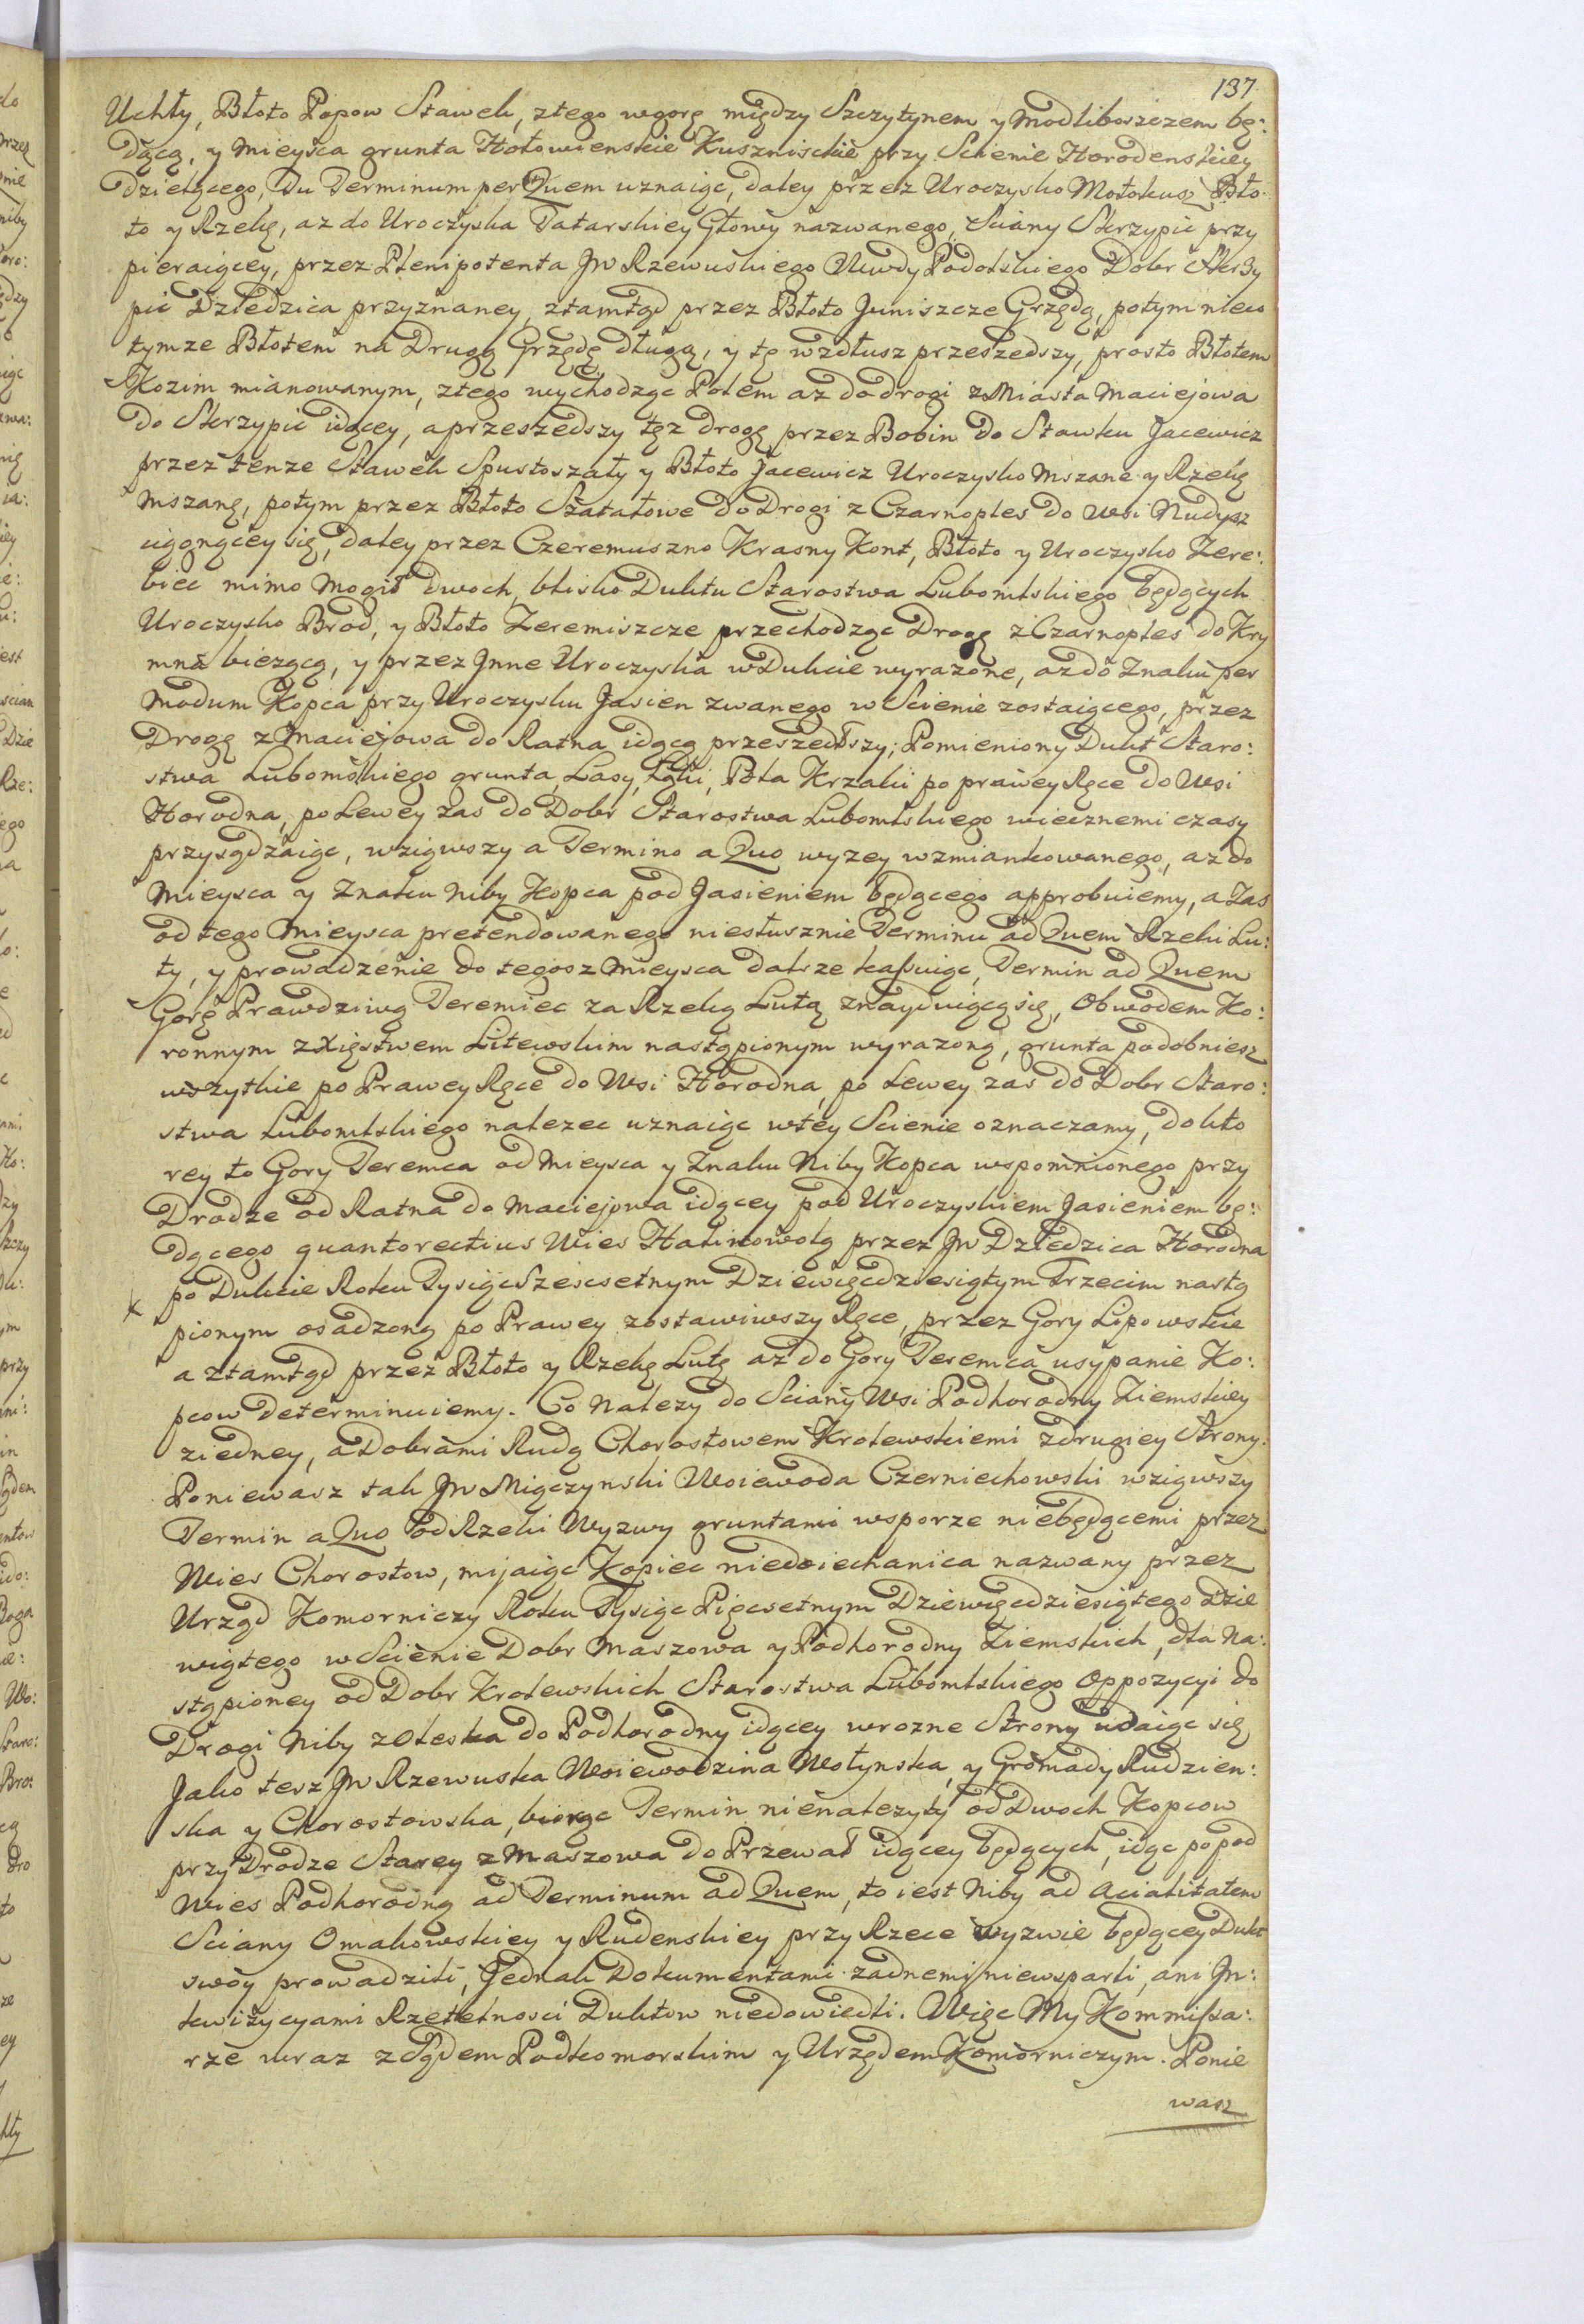 137
Uchły, Błoto Popow Stawek, ztego wgorę między Szczytynem y Modliboszczem bę:
dącą, y Mieysca grunta Hołowienskie Kusznisckie przy Scienie Horodenskiey
dzielącego, Du Terminum per Quem uznaiąc, daley przez Uroczysko Mołokusz Bło:
to y Rzekę, az do Uroczyska Tatarskiey Głowy nazwanego, Sciany Skrzypic przy
pieraiącey, przez Plenipotenta JW Rzewuskiego Wdy Podolskiego Dobr Skrzy
pic Dziedzica przyznaney, ztamtąd przez Błoto Juniszcze Grzędą, potym nieco
tymze Błotem na Drugą Grzędę długą, y tę wzdłusz przeszedszy, prosto Błotem
Kozim mianowanym, ztego wychodząc Polem az do drogi z Miasta Maciejowa
do Skrzypic idącey, a przeszedszy tęz drogę przez Bobin do Stawku Jacewicz
przez tenze Stawek Spustoszały y Błoto Jacewicz Uroczysko Mszane y Rzekę
Mszanę, potym przez Błoto Szałatowe do Drogi z Czarnoples do Wsi Nudysz
ciągnącey się, daley przez Czeremuszno Krasny Kont, Błoto y Uroczysko Zere:
biec mimo Mogił dwoch, blisko Duktu Starostwa Lubomlskiego będących
Uroczysko Brod, y Błoto Zeremiszcze przechodząc Drogę z Czarnoples do Kry
mna biezącą, y przez Jnne Uroczyska w Dukcie wyrazone, az do Znaku per
modum Kopca przy Uroczysku Jasien zwanego w Scienie zostaiącego, przez
Drogę z Maciejowa do Ratna idącą przeszedłszy; Pomieniony Dukt Staro:
stwa Lubomskiego grunta, Lasy, Łąki, Pola Krzaki po prawey Ręce do Wsi
Horodna, po Lewey zas do Dobr Starostwa Lubomlskiego wiecznemi czasy
przysądzaiąc, wziąwszy a Termino a Quo wyzey wzmiankowanego, az do
Mieysca y Znaku Niby Kopca pod Jasieniem będącego approbuiemy, a Zas
od tego Mieysca pretendowanego niesłusznie Terminu ad Quem Rzeki Lu:
ty, y prowadzenie do tegosz Mieysca dalsze kassuiąc, Termin ad Quem
Gorę Prawdziwą Teremiec za Rzeką Lutą znayduiącą się, Obwodem Ko:
ronnym z Xięstwem Litewskim nastąpionym wyrazoną, grunta podobniesz
wszytkie po Prawey Ręce do Wsi Horodna, po Lewey zas do Dobr Staro:
stwa Lubomlskiego nalezec uznaiąc wtey Scienie oznaczamy, do kto
rey to Gory Teremca od Mieysca y Znaku Niby Kopca wspomnionego przy
Drodze od Ratna do Maciejowa idącey pod Uroczyskiem Jasieniem bę:
dącego quanto rectius Wies Halinowolą przez JW Dziedzica Horodna
po Dukcie Roku Tysiąc Szescsetnym Dziewięcdziesiątym Trzecim nastą
pionym osadzoną po Prawey zostawiwszy Ręce, przez Gory Lipowskie
a ztamtąd przez Błoto y Rzekę Lutę az do Gory Teremca usypanie Ko:
pcow determinuiemy. Co Nalezy do Sciany Wsi Podhorodny Ziemskiey
ziedney, a Dobrami Rudą Chorostowem Krolewskiemi zdrugiey Strony.
Poniewasz tak JW Miączynski Woiewoda Czerniechowski wziąwszy
Termin a Quo od Rzeki Wyzwy gruntami wsporze niebędącemi przez
Wies Chorostow, mijaiąc Kopiec niedoiechanica nazwany przez
Urząd Komorniczy Roku Tysiąc Pięcsetnym Dziewięcdziesiątego Dzie
wiątego w Scienie Dobr Maszowa y Podhorodny Ziemskich, dla Na:
stąpioney od Dobr Krolewskich Starostwa Lubomlskiego Oppozycyi do
Drogi Niby z Oleska do Podhorodny idącey wrozne Strony udaiąc się,
Jako tesz JW Rzewuska Woiewodzina Wołynska, y Gromady Rudzien:
ska y Chorostowska, biorąc Termin nienalezyty od Dwoch Kopcow
przy Drodze Starey z Maszowa do Przewał idącey będących, idąc popod
Wies Podhorodną ad Terminum ad Quem, to iest Niby ad Acialitatem
Sciany Omakowskiey y Rudenskiey przy Rzece Wyzwie będącey Dukt
swoy prowadzili, Jednak Dokumentami zadnemi niewsparli, ani Jn:
kwizycyami Rzetelnosci Duktow niedowiedli. Więc My Kommissa:
rze wraz z Sądem Podkomorskim y Urzędem Komorniczym. Ponie
wasz